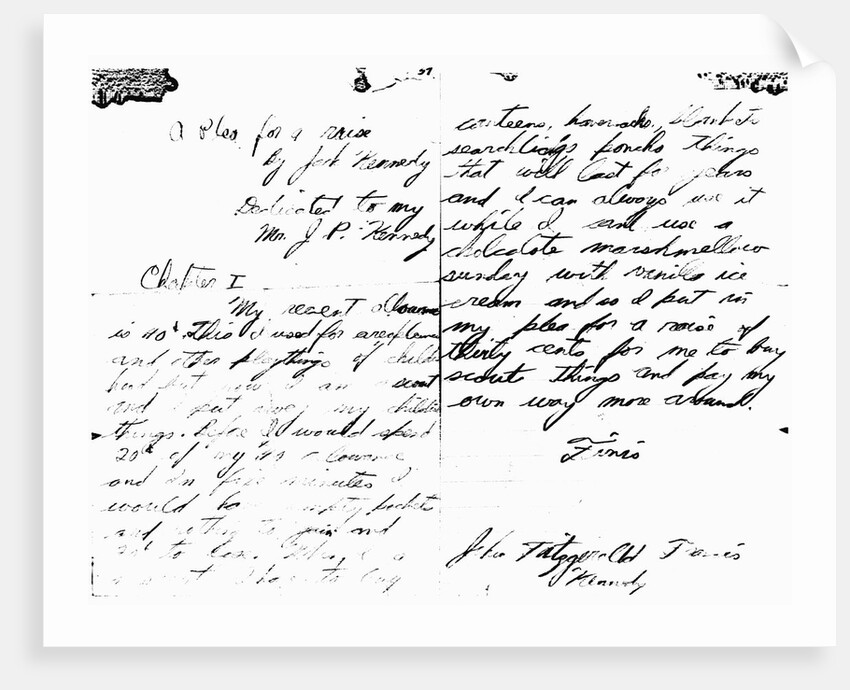 37
A Plea for a raise
By Jack Kennedy
Dedicated to my
Mr. J. P. Kennedy
Chapter I
My recent allowance
is 40¢. This I used for areoplanes
and other playthings of childhood
but now I am a scout
and I put away my childish
things. Before I would spend
20¢ of my 40¢ allowance
and In five minutes I
would have empty pockets
and nothing to gain and
20¢ to lose. When I a
a scout I have to buy
canteens, haversacks, blankets
searchlidgs poncho things
that will last for years
and I can always use it
while I cant use a
cholcalote marshmellow
sunday with vanilla ice
cream and so I put in
my plea for a raise of
thirty cents for me to buy
scouts things and pay my
own way more around.
Finis
John Fitzgerald Francis
Kennedy